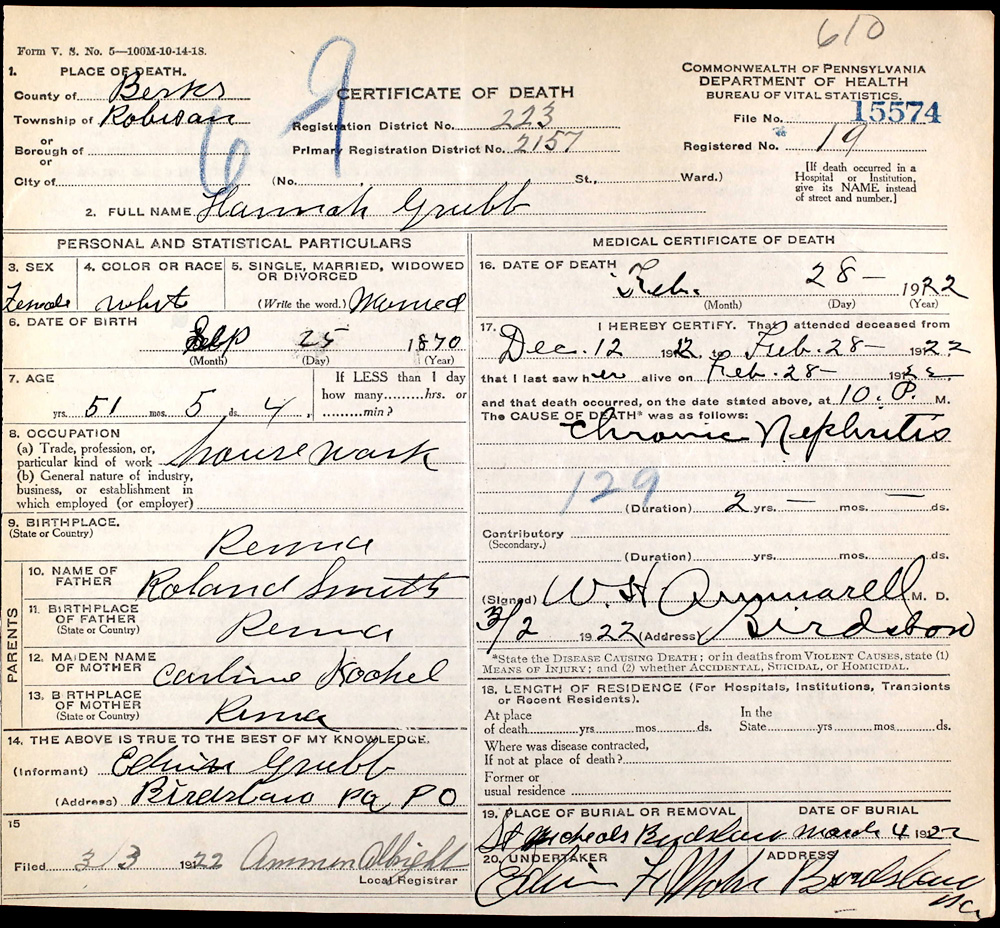 610
Form V. S. No. 5—100M-10-14-18.
1. PLACE OF DEATH.
County of Berks
Township of Robison
or
Borough of
or
City of
69
CERTIFICATE OF DEATH
Registration District No. 223
Primary Registration District No. 2157
(No. , St., Ward.)
COMMONWEALTH OF PENNSYLVANIA
DEPARTMENT OF HEALTH
BUREAU OF VITAL STATISTICS.
File No. 15574
Registered No. 19
[If death occurred in a
Hospital or Institution,
give its NAME instead
of street and number.]
2. FULL NAME Hannah Grubb
PERSONAL AND STATISTICAL PARTICULARS
3. SEX
Female
4. COLOR OR RACE
white
5. SINGLE, MARRIED, WIDOWED
OR DIVORCED
(Write the word.) Married
6. DATE OF BIRTH
Sep 25 1870
(Month) (Day) (Year)
7. AGE
51 yrs. 5 mos. 4 ds.
If LESS than 1 day
how many hrs. or
min?
8. OCCUPATION
(a) Trade, profession, or,
particular kind of work house work
(b) General nature of industry,
business, or establishment in
which employed (or employer)
9. BIRTHPLACE.
(State or Country)
Penna
PARENTS
10. NAME OF
FATHER Roland Smith
11. BIRTHPLACE
OF FATHER
(State or Country) Penna
12. MAIDEN NAME
OF MOTHER Carline Kochel
13. BIRTHPLACE
OF MOTHER
(State or Country) Penna
14. THE ABOVE IS TRUE TO THE BEST OF MY KNOWLEDGE.
(Informant) Edwin Grubb
(Address) Birdsboro Pa PO
15
Filed 3/3 1922 Ammon Albright
Local Registrar
MEDICAL CERTIFICATE OF DEATH
16. DATE OF DEATH
Feb. 28— 1922
(Month) (Day) (Year)
17. I HEREBY CERTIFY. That I attended deceased from
Dec. 12 19 to Feb. 28— 1922
that I last saw her alive on Feb. 28— 1922
and that death occurred, on the date stated above, at 10. P. M.
The CAUSE OF DEATH* was as follows:
Chronic Nephritis
129
(Duration) 2 yrs. — mos. — ds.
Contributory
(Secondary.)
(Duration) yrs. mos. ds.
(Signed) W. H Ammarell M. D.
3/2 1922 (Address) Birdsboro
*State the DISEASE CAUSING DEATH; or in deaths from VIOLENT CAUSES, state (1)
MEANS OF INJURY; and (2) whether ACCIDENTAL, SUICIDAL, or HOMICIDAL.
18. LENGTH OF RESIDENCE (For Hospitals, Institutions, Transients
or Recent Residents).
At place
of death yrs mos ds.
In the
State yrs mos ds.
Where was disease contracted,
If not at place of death?
Former or
usual residence
19. PLACE OF BURIAL OR REMOVAL
St Micheals Birdsboro
DATE OF BURIAL
March 4 1922
20. UNDERTAKER
Edwin F Mohr
ADDRESS
Birdsboro
Pa